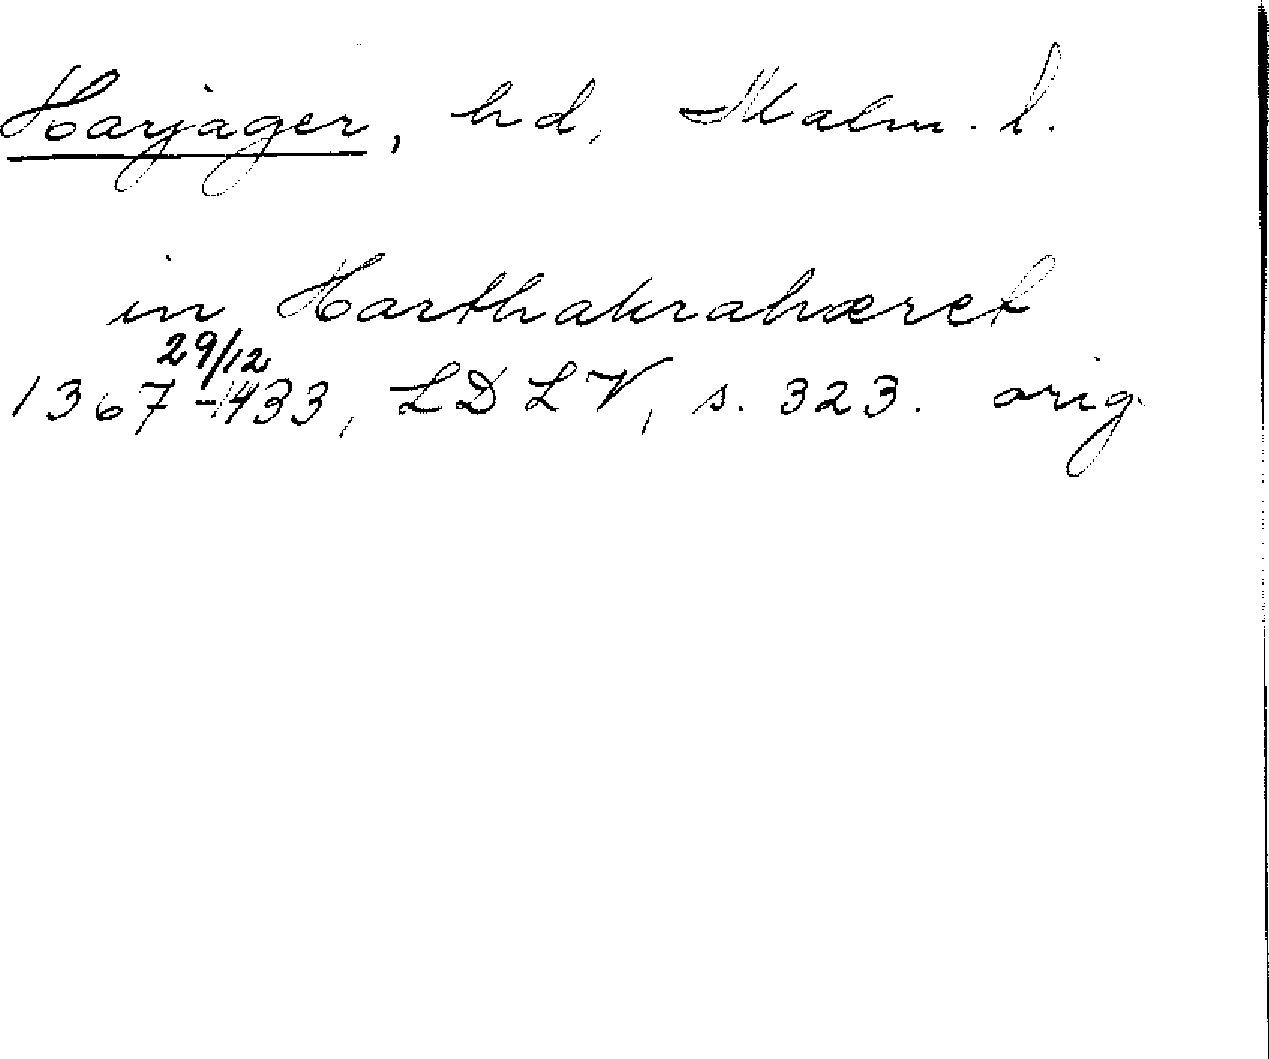 Harjager, hd, Malm. l.
in Harthakrahæret
29/12
1367-1433, LDLV, s. 323. orig.